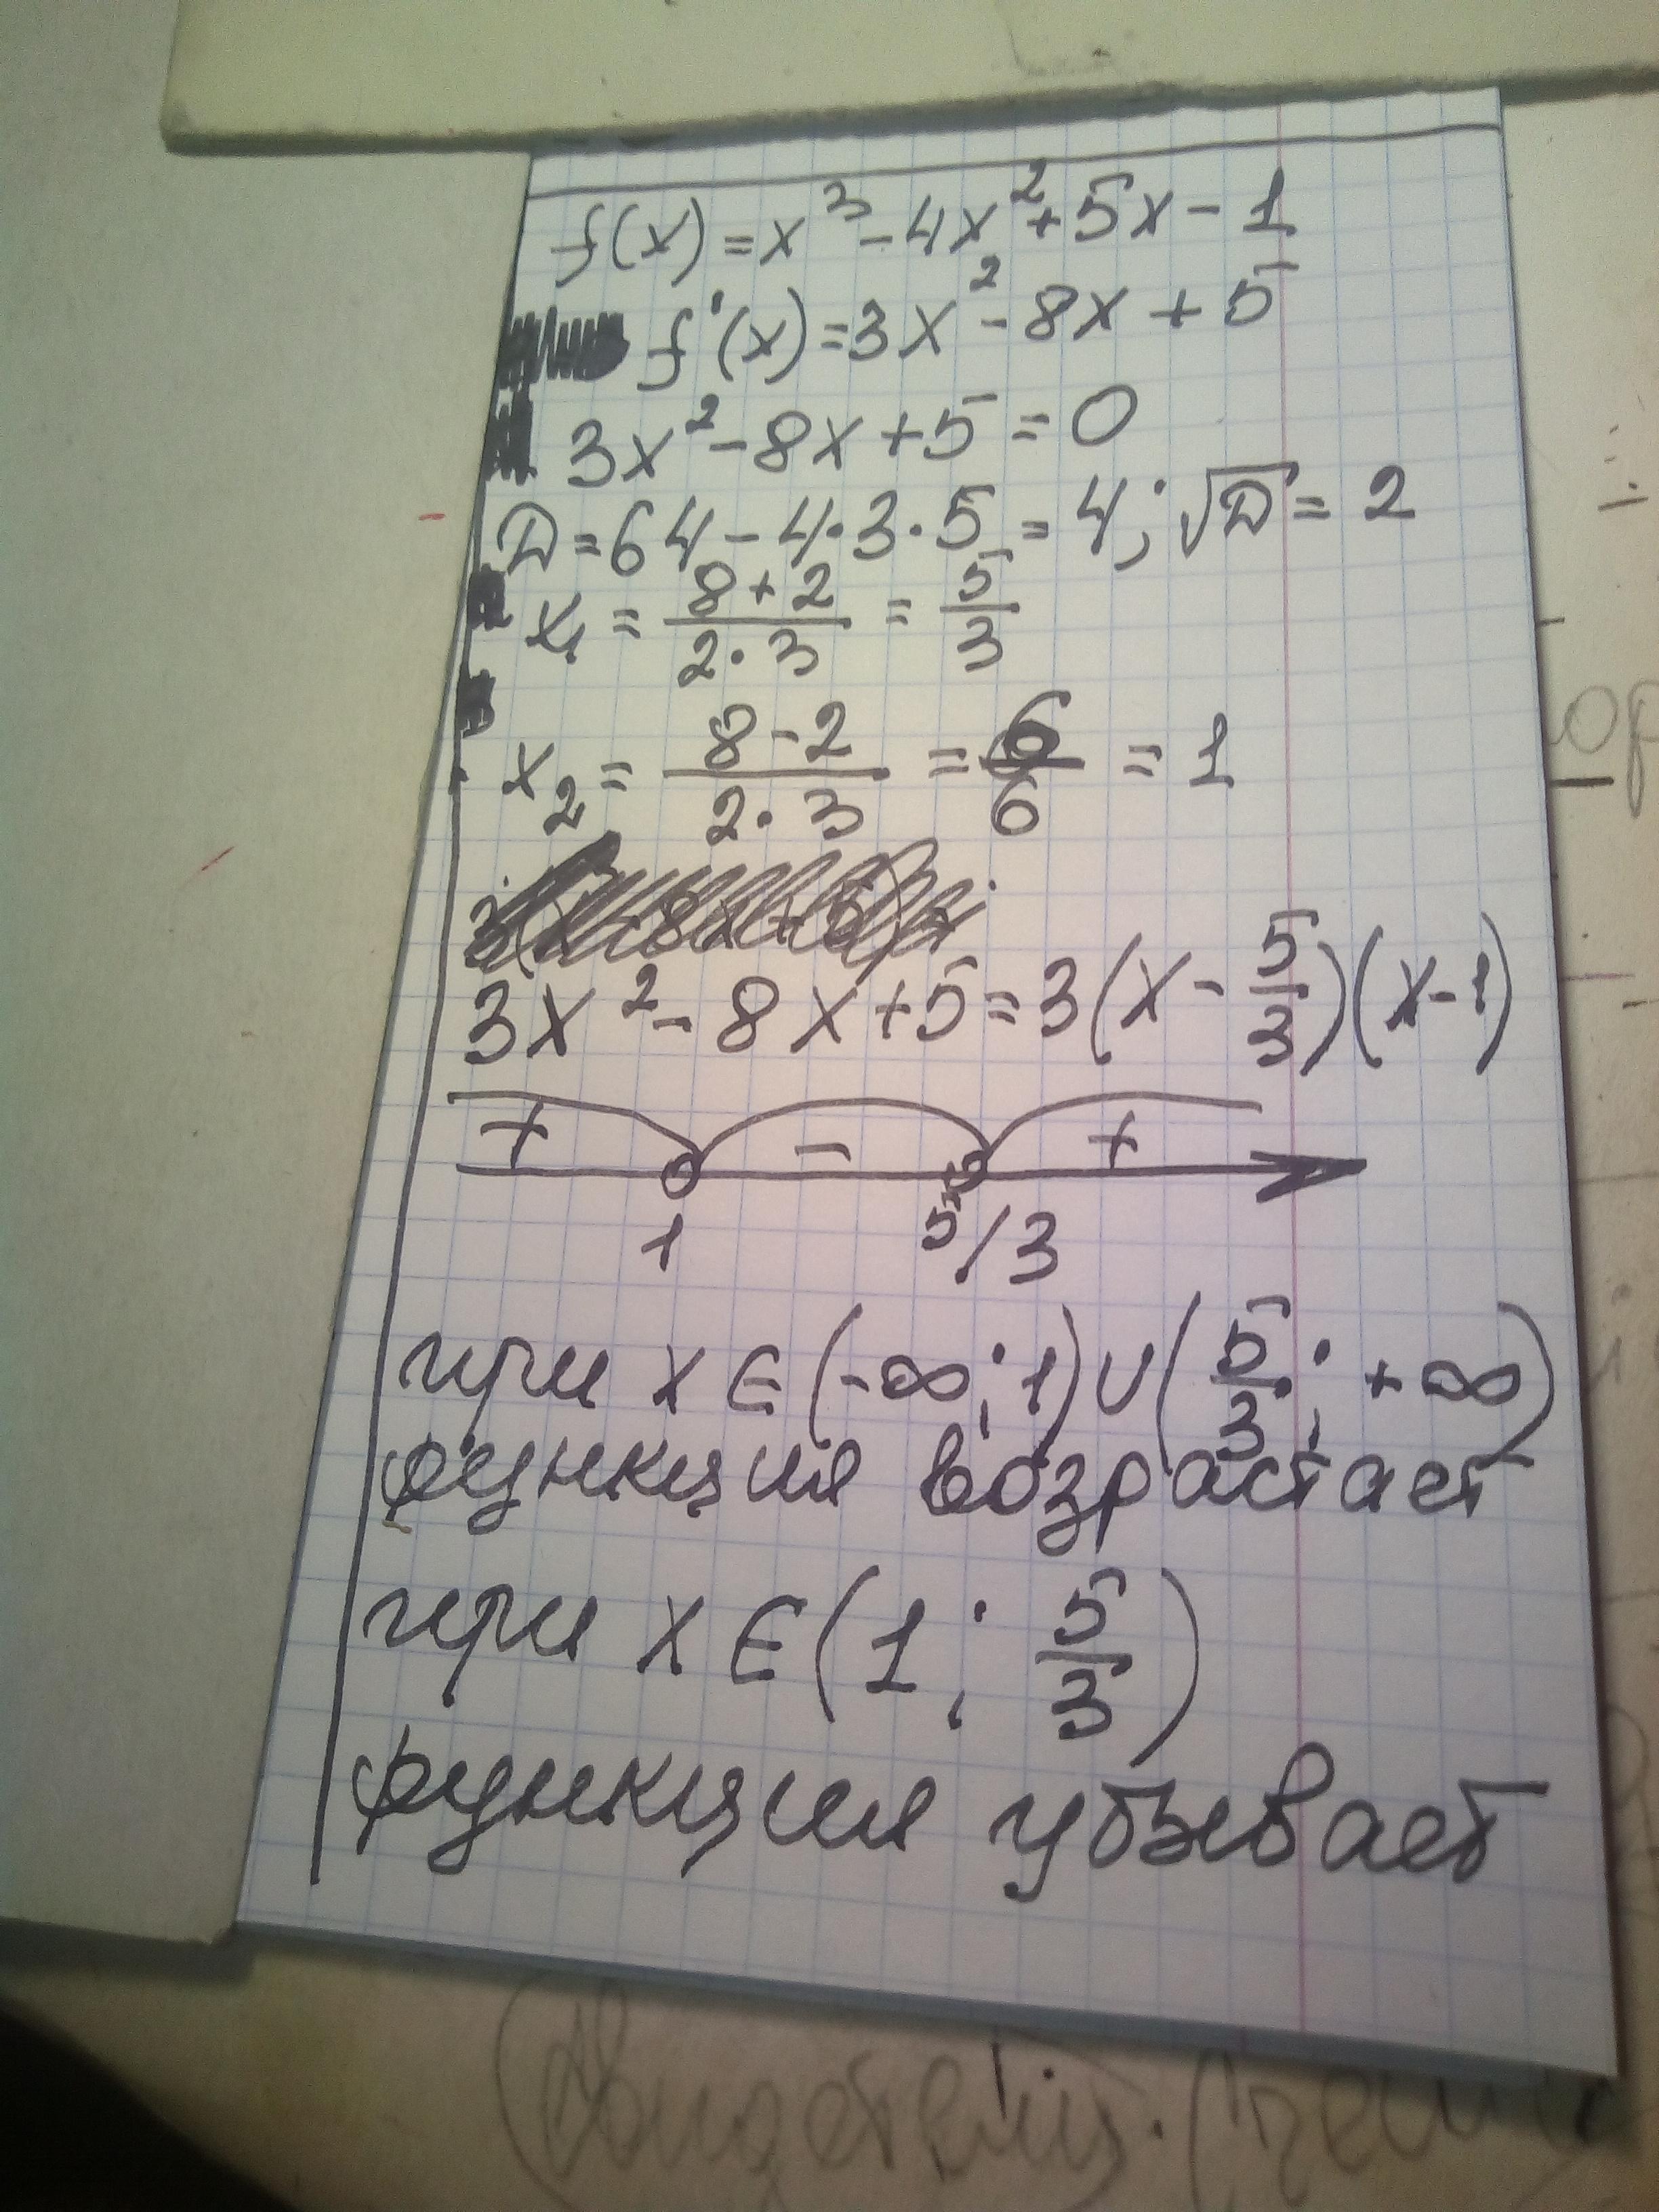 f(x) = x³ - 4x² + 5x - 1
f'(x) = 3x² - 8x + 5
3x² - 8x + 5 = 0
D = 64 - 4·3·5 = 4; √D = 2
x₁ = (8+2)/(2·3) = 5/3
x₂ = (8-2)/(2·3) = 6/6 = 1
3x² - 8x + 5 = 3(x - 5/3)(x-1)
+ - +
1 5/3
при x ∈ (-∞; 1) ∪ (5/3; +∞)
функция возрастает
при x ∈ (1; 5/3)
функция убывает